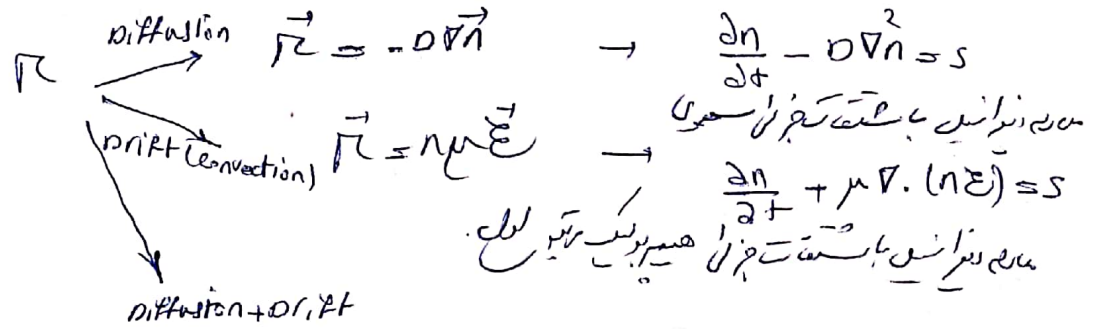 Diffusion Γ⃗ = -D∇n⃗ → ∂n/∂t - D∇²n = S
Γ
معادله دیفرانسیل با مشتقات جزئی سهموی
Drift (Convection) Γ⃗ = nμℰ⃗ → ∂n/∂t + μ∇.(nℰ) = S
معادله دیفرانسیل با مشتقات جزئی هیپربولیک مرتبه اول.
Diffusion + Drift